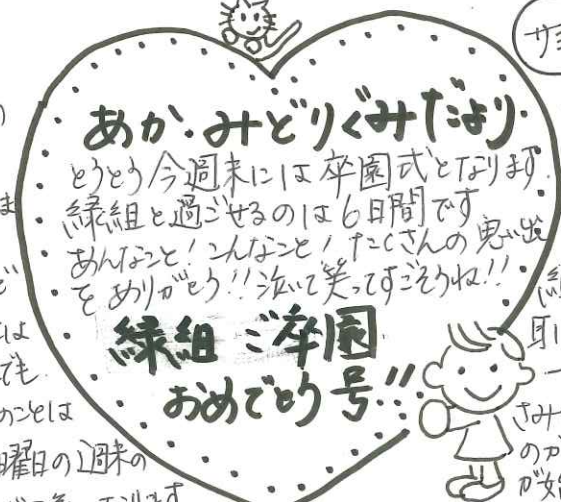 あか・みどりぐみだより
とうとう今週末には卒園式となります。
緑組と過ごせるのは6日間です
あんなこと!こんなこと!たくさんの思い出
をありがとう!!泣いて笑ってすごそうね!!
緑組 ご卒園
おめでとう号!!
のことは
曜日の週末の